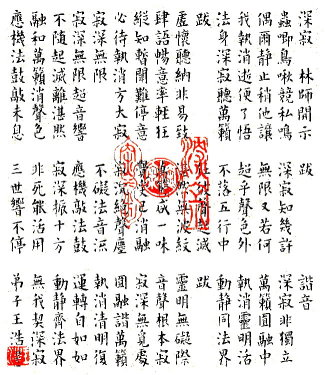 深寂 林師開示
蟲唧鳥啾競私鳴
偶爾靜止稍他讓
我執消逝便了悟
法身深寂聽萬籟
跋
虛懷聽納非易致
肆語暢意率輕狂
縱知暫開難停意
心待執消方大寂
深寂無限
寂深無限超音響
不隨起滅離湛然
融和萬籟消聲色
應機法鼓敲未息
跋
深寂知幾許
無限又若何
超乎聲色外
不落五行中
滅
無波紋
成一味
已消融
寂深絕聲塵
不礙法音流
應機敲法鼓
寂深振十方
非死寂活用
三世響不停
諧音
深寂非獨立
萬籟圓融中
執消靈明活
動靜同法界
跋
靈明無礙際
音聲根本寂
寂深無覓處
圓融諧萬籟
執消清明復
運轉自如如
動靜齊法界
無我契深寂
弟子王浩